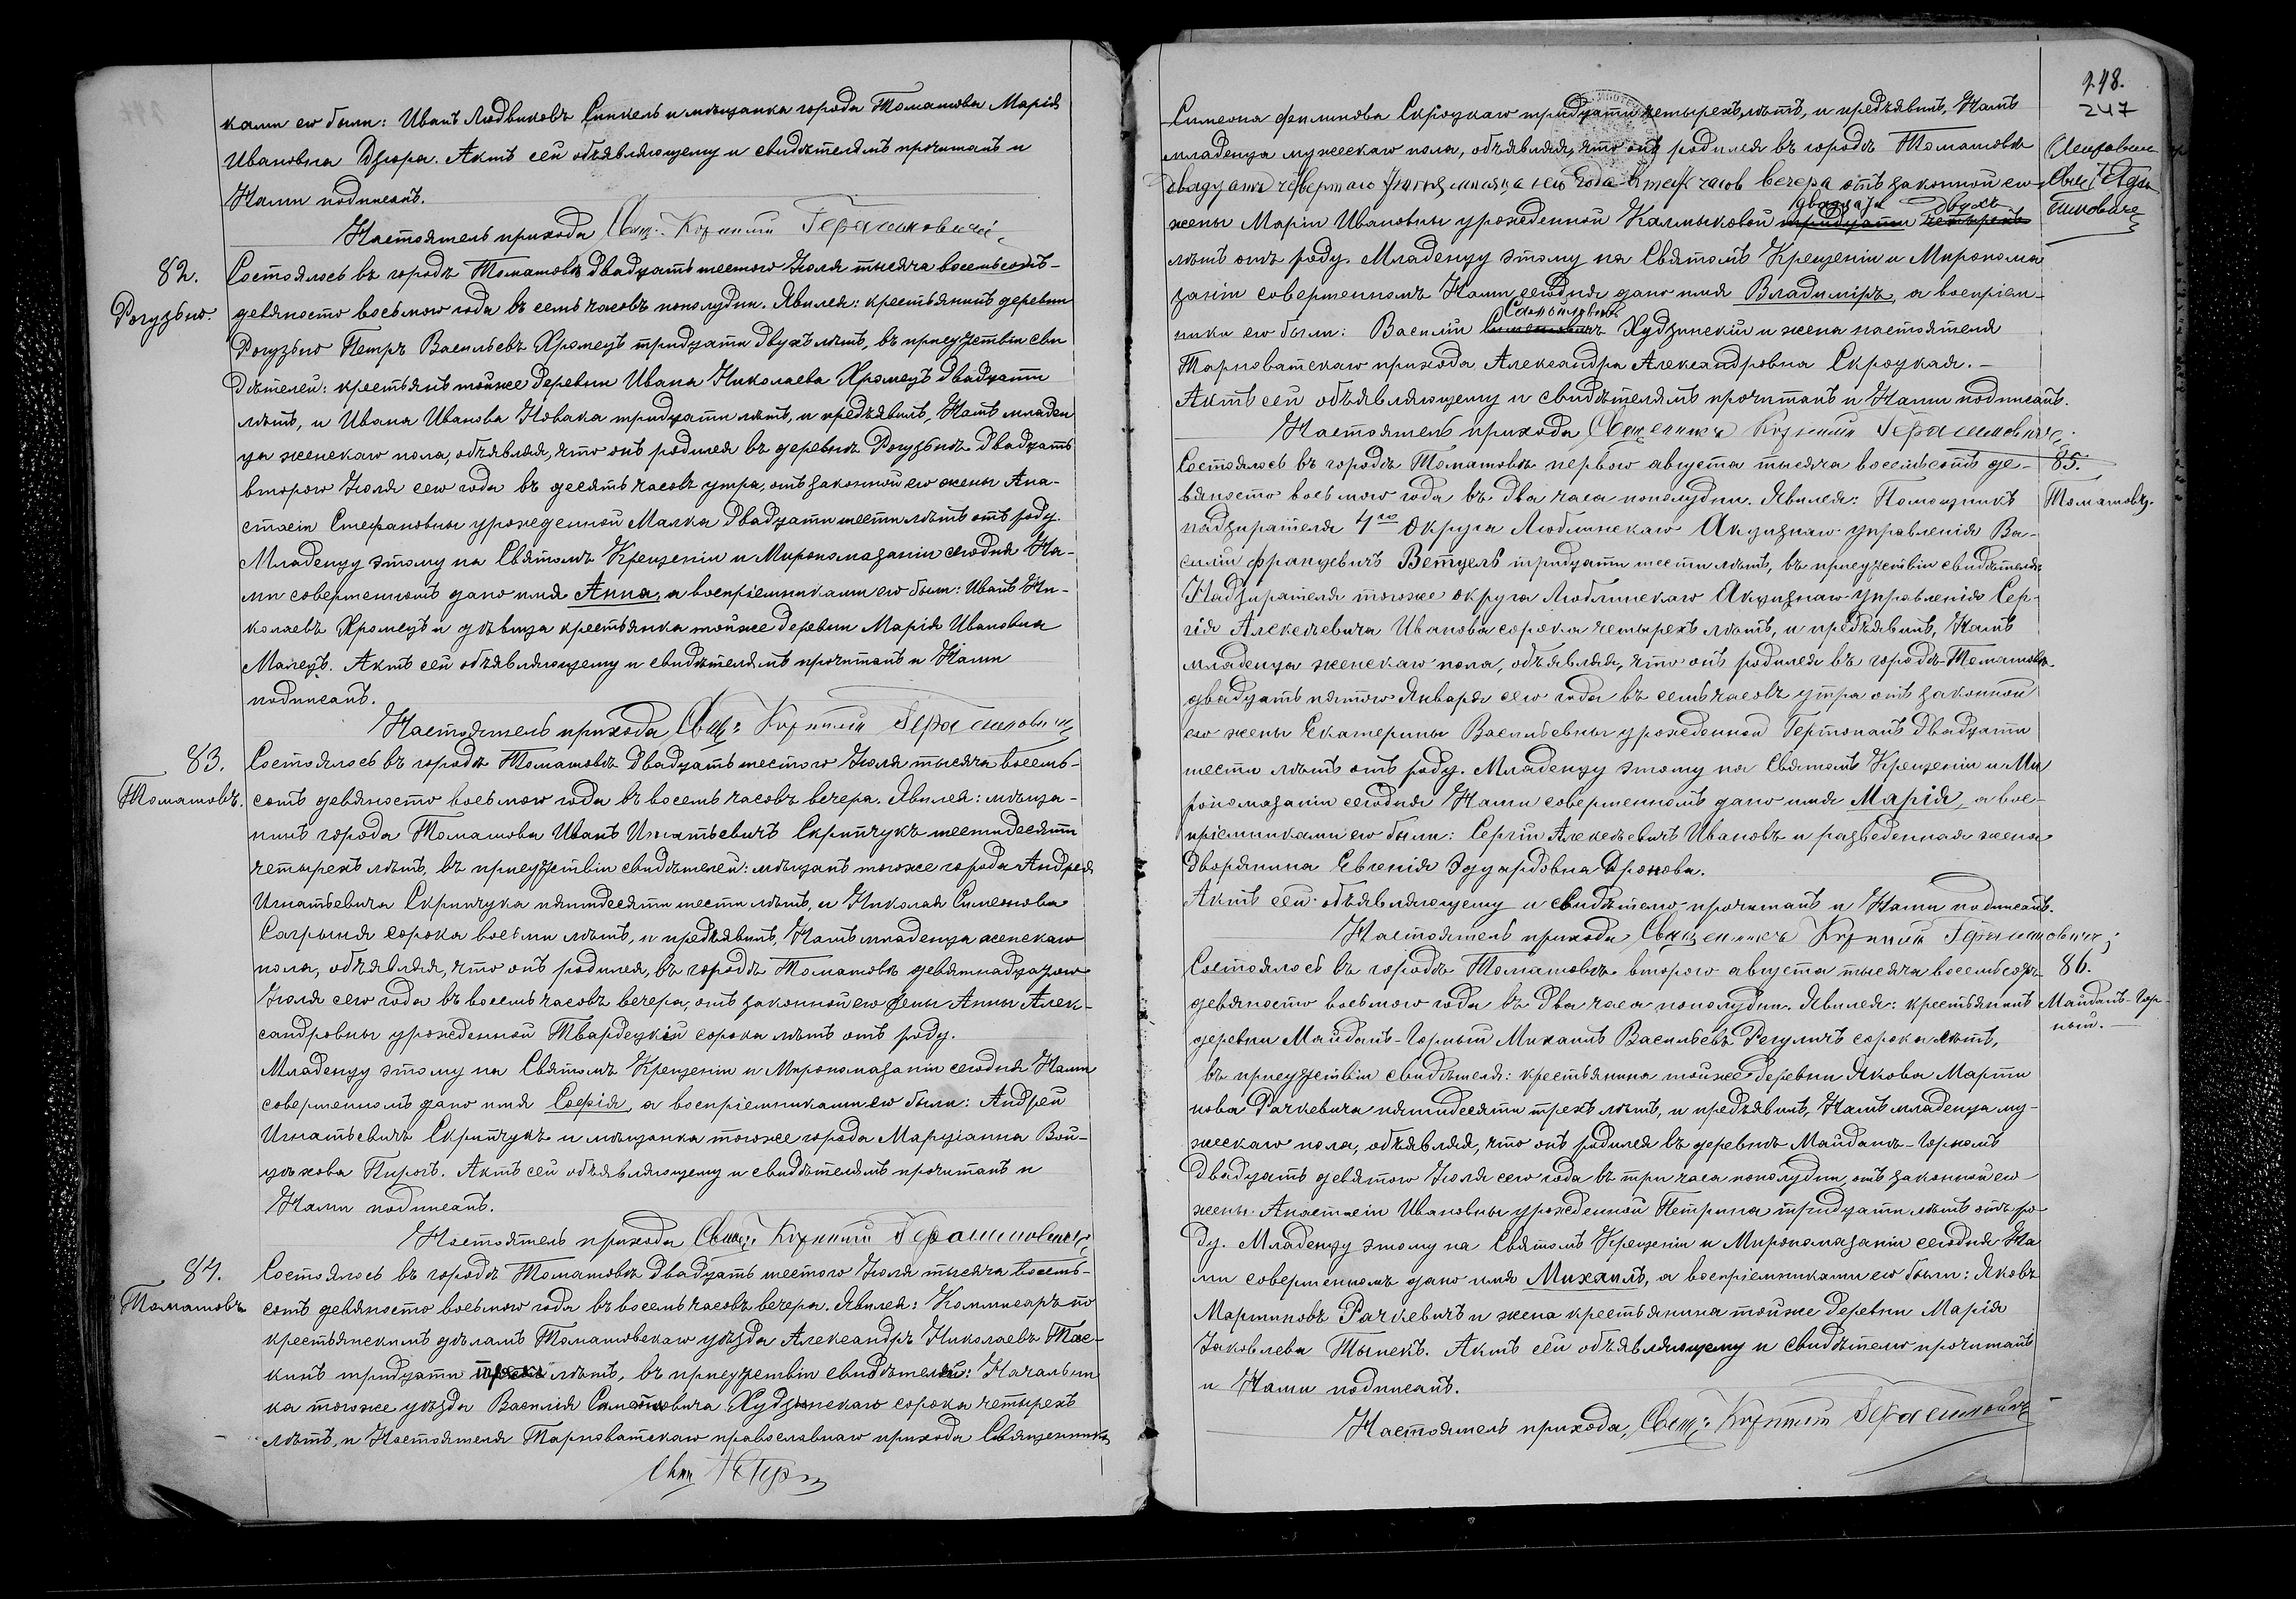 ками его были: Иванъ Людвиковъ Синкель и мѣщанка города Томашова Марія
Ивановна Дзюра. Актъ сей объявляющему и свидѣтелямъ прочитанъ и
Нами подписанъ.
Настоятель прихода Свящ: Корнилій Герасимовичъ
82.
Рогузьно.
Состоялось въ городѣ Томашовѣ двадцать шестого Іюля тысяча восемьсотъ-
девяносто восьмого года въ семь часовъ пополудни. Явился: крестьянинъ деревни
Рогузьно Петръ Васильевъ Хромецъ тридцати двухъ лѣтъ, въ присутствіи сви
дѣтелей: крестьянъ тойже деревни Ивана Николаева Хромецъ двадцати
лѣтъ, и Ивана Иванова Новака тридцати лѣтъ, и предъявилъ, Намъ младен
ца женскаго пола, объявляя, что онъ родился въ деревнѣ Рогузьнѣ двадцать
второго Іюля сего года въ десять часовъ утра, отъ законной его жены Ана-
стасіи Стефановны урожденной Малка двадцати шести лѣтъ отъ роду.
Младенцу этому на Святомъ Крещеніи и Миропомазаніи сегодня На-
ми совершенномъ дано имя Анна, а воспріемниками его были: Иванъ Ни-
колаевъ Хромецъ и дѣвица крестьянка тойже деревни Марія Ивановна
Малецъ. Актъ сей объявляющему и свидѣтелямъ прочитанъ и Нами
подписанъ.
Настоятель прихода Свящ: Корнилій Герасимовичъ
83.
Томашовъ.
Состоялось въ городѣ Томашовѣ двадцать шестого Іюля тысяча восемь-
сотъ девяносто восьмого года въ восемь часовъ вечера. Явился: мѣща-
нинъ города Томашова Иванъ Игнатьевичъ Скрипчукъ шестидесяти
четырехъ лѣтъ, въ присутствіи свидѣтелей: мѣщанъ тогоже города Андрея
Игнатьевича Скрипчука пятидесяти шести лѣтъ, и Николая Симеонова
Сагрыня сорока восьми лѣтъ, и предъявилъ, Намъ младенца женскаго
пола, объявляя, что онъ родился, въ городѣ Томашовѣ девятнадцатого
Іюля сего года въ восемь часовъ вечера, отъ законной его жены Анны Алек-
сандровны урожденной Твардецкій сорока лѣтъ отъ роду.
Младенцу этому на Святомъ Крещеніи и Миропомазаніи сегодня Нами
совершенномъ дано имя Софія, а воспріемниками его были: Андрей
Игнатьевичъ Скрипчукъ и мѣщанка тогоже города Марціанна Вой-
цѣхова Пирогъ. Актъ сей объявляющему и свидѣтелямъ прочитанъ и
Нами подписанъ.
Настоятель прихода Свящ: Корнилій Герасимовичъ
84.
Томашовъ
Состоялось въ городѣ Томашовѣ двадцать шестого Іюля тысяча восемь-
сотъ девяносто восьмого года въ восемь часовъ вечера. Явился: Коммисаръ по
крестьянскимъ дѣламъ Томашовскаго уѣзда Александръ Николаевъ Тас-
кинъ тридцати трехъ лѣтъ, въ присутствіи свидѣтелей: Начальни
ка тогоже уѣзда Василія Самойловича Худзинскаго сорока четырехъ
лѣтъ, и Настоятеля Тарноватскаго православнаго прихода Священника
Свящ
248.
247
Симеона Филипова Скроцкаго тридцати четырехъ лѣтъ, и предъявилъ, Намъ
младенца мужескаго пола, объявляя, что онъ родился въ городѣ Томашовѣ
двадцать четвертаго Іюня мѣсяца сего года въ часов вечера отъ законной его
двадцати двухъ
жены Маріи Ивановны урожденной Калмыковой тридцати четырехъ
лѣтъ отъ роду. Младенцу этому на Святомъ Крещеніи и Миропома
заніи совершенномъ Нами сегодня дано имя Владиміръ, а воспріем-
Самойловичъ
ники его были: Василій Симеоновичъ Худзинскій и жена настоятеля
Тарноватскаго прихода Александра Александровна Скроцкая. –
Актъ сей объявляющему и свидѣтелямъ прочитанъ и Нами подписанъ.
Настоятель прихода Священникъ Корнилій Герасимовичъ
85.
Томашовъ.
Состоялось въ городѣ Томашовѣ перваго августа тысяча восемьсотъ де-
вяносто восьмого года въ два часа пополудни. Явился: Помощникъ
надзирателя 4го Округа Люблинскаго Акцизнаго управленія Ва-
силій Францевичъ Ветцель тридцати шести лѣтъ, въ присутствіи свидѣтеля
Надзирателя тогоже округа Люблинскаго Акцизнаго управленія Сер-
гія Алексѣевича Иванова сорока четырехъ лѣтъ, и предъявилъ, Намъ
младенца женскаго пола, объявляя, что онъ родился въ городѣ Томашовѣ
двадцать пятого Января сего года въ семь часовъ утра отъ законной
его жены Екатерины Васильевны урожденной Гертопанъ двадцати
шести лѣтъ отъ роду. Младенцу этому на Святомъ Крещеніи и Ми
ропомазаніи сегодня Нами совершенномъ дано имя Марія, а вос-
пріемниками его были: Сергій Алексѣевичъ Ивановъ и разведенная жена
дворянина Евгенія Эдуардовна Дронова.
Актъ сей объявляющему и свидѣтелю прочитанъ и Нами подписанъ.
Настоятель прихода Священникъ Корнилій Герасимовичъ
86.
Майданъ-Гор-
ный.
Состоялось въ городѣ Томашовѣ второго августа тысяча восемьсотъ
девяносто восьмого года въ два часа пополудни. Явился: крестьянинъ
деревни Майданъ-Горный Михаилъ Васильевъ Регуличъ сорока лѣтъ,
въ присутствіи свидѣтеля: крестьянина тойже деревни Якова Марти
нова Рачкевича пятидесяти трехъ лѣтъ, и предъявилъ, Намъ младенца му-
жескаго пола, объявляя, что онъ родился въ деревнѣ Майданъ-Горномъ
двадцать девятого Іюля сего года въ три часа пополудни, отъ законной его
жены Анастасіи Ивановны урожденной Петрина тридцати лѣтъ отъ ро-
ду. Младенцу этому на Святомъ Крещеніи и Миропомазаніи сегодня На
ми совершенномъ дано имя Михаилъ, а воспріемниками его были: Яковъ
Мартиновъ Рачкевичъ и жена крестьянина тойже деревни Марія
Яковлева Тынекъ. Актъ сей объявляющему и свидѣтелю прочитанъ
и Нами подписанъ.
Настоятель прихода, Свящ: Корнилій Герасимовичъ